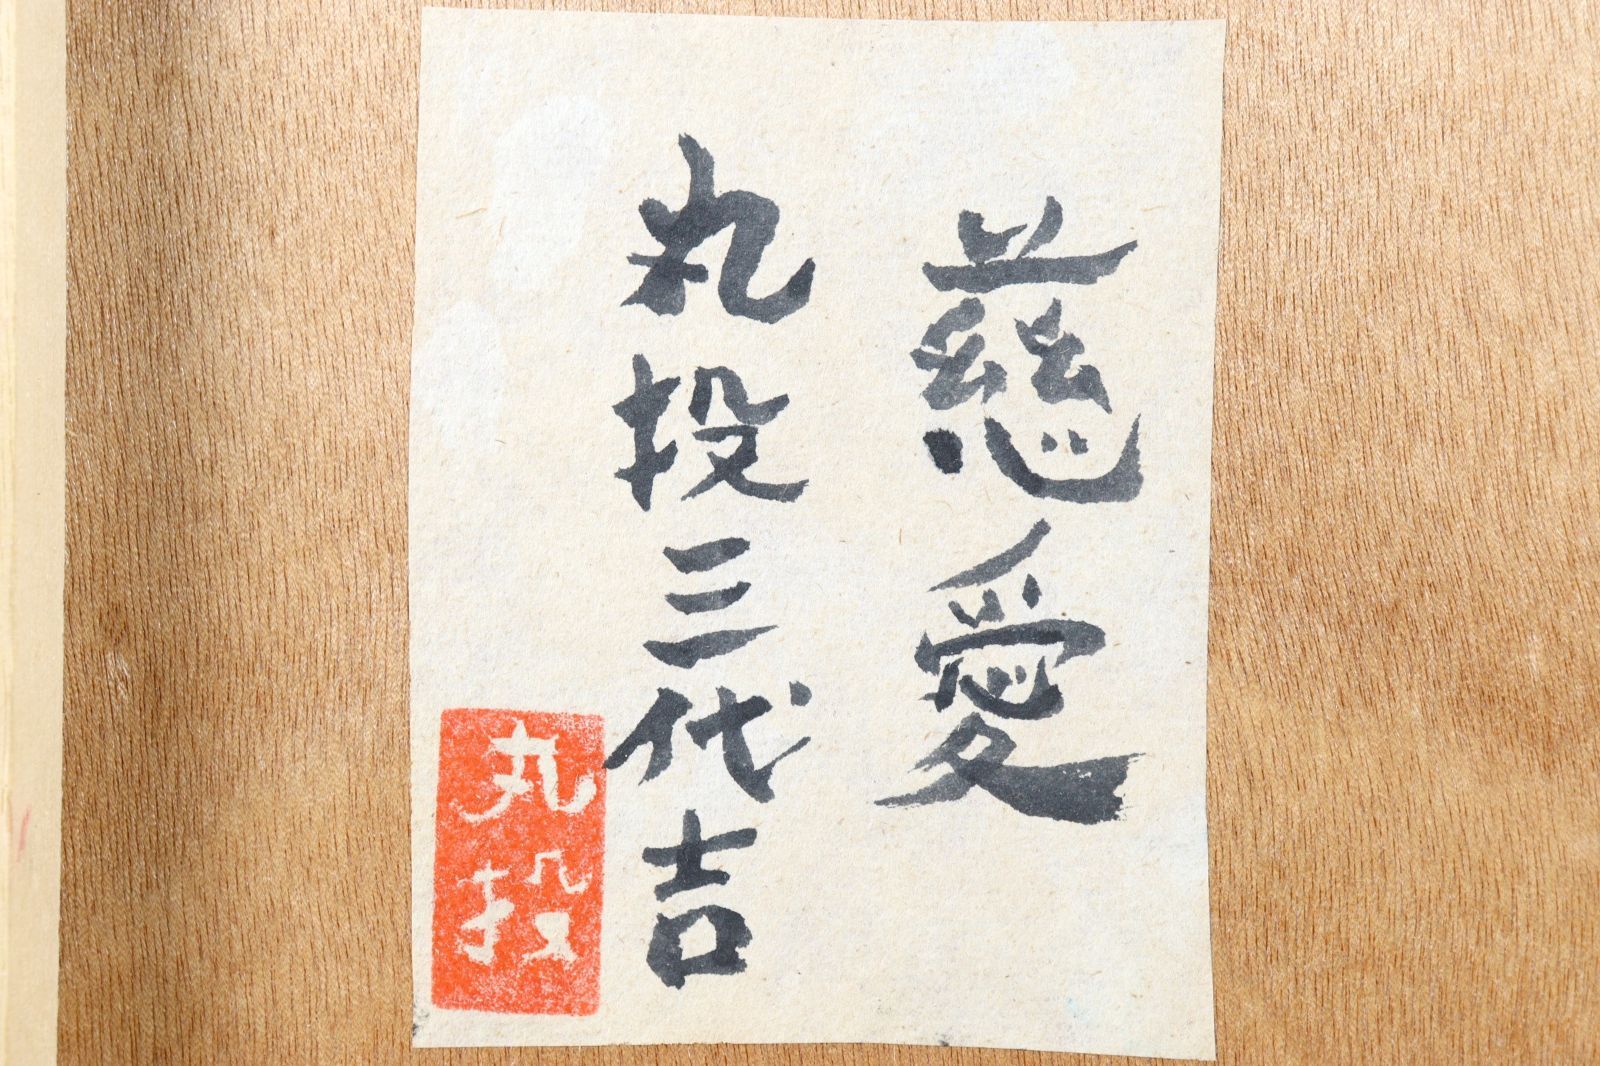 慈愛
丸投三代吉
丸投